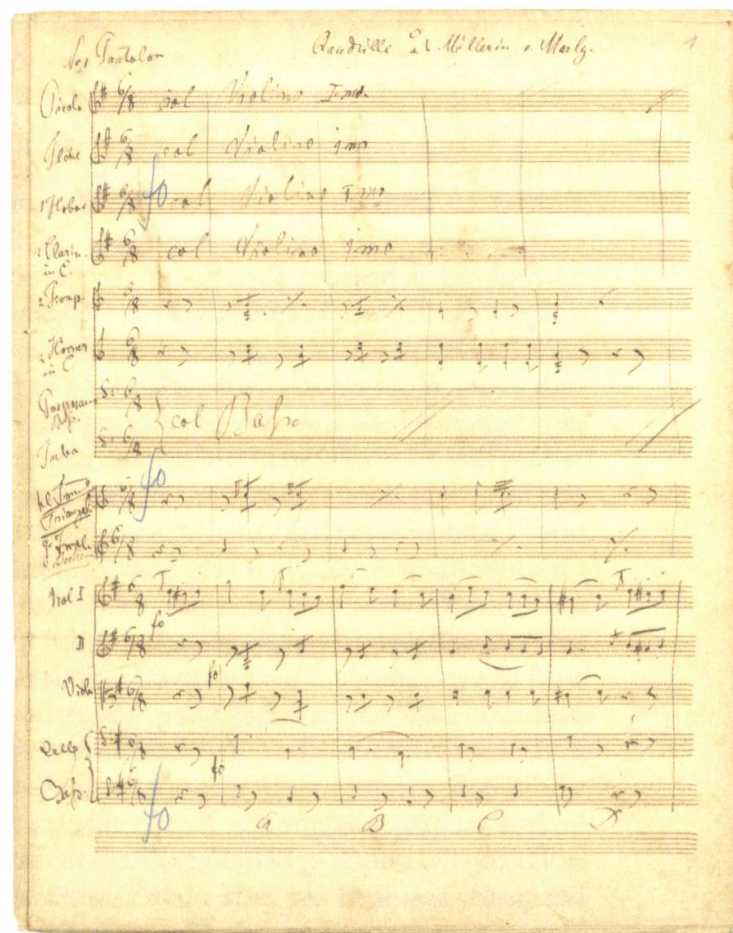 Pantalon Quadrille Müllerin v. Marly. 1
Piccolo 6/8 col Violino Imo
Flöte 6/8 col Violino Imo
6/8 fo col Violino Imo
Clarin. in C. 6/8 col Violino Imo
2 Tromp. 6/8
2 Hörner in C 6/8
6/8 col Basso
Tuba 6/8
fo
Triangel 6/8
6/8
Viol I 6/8 fo
II 6/8 fo
Viola 6/8
Cello 6/8 fo
Bass 6/8 fo
A B C D